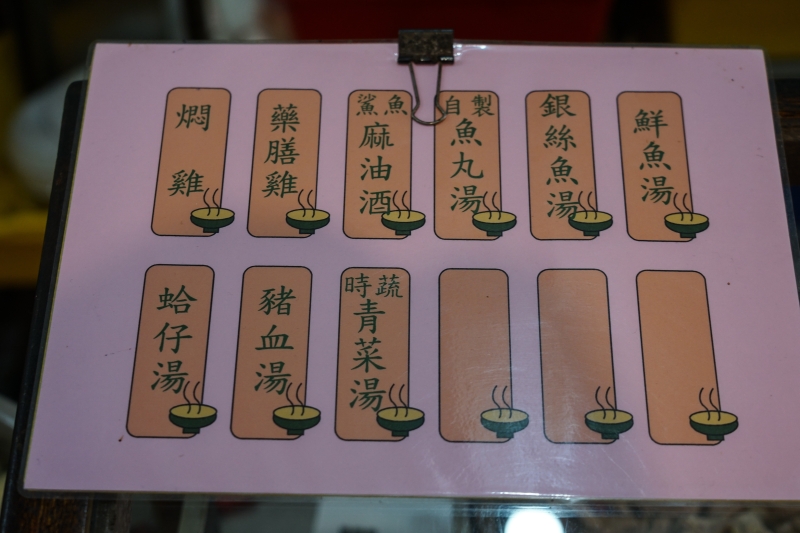 燜雞
藥膳雞
鯊魚
麻油酒
自製
魚丸湯
銀絲魚湯
鮮魚湯
蛤仔湯
豬血湯
時蔬
青菜湯